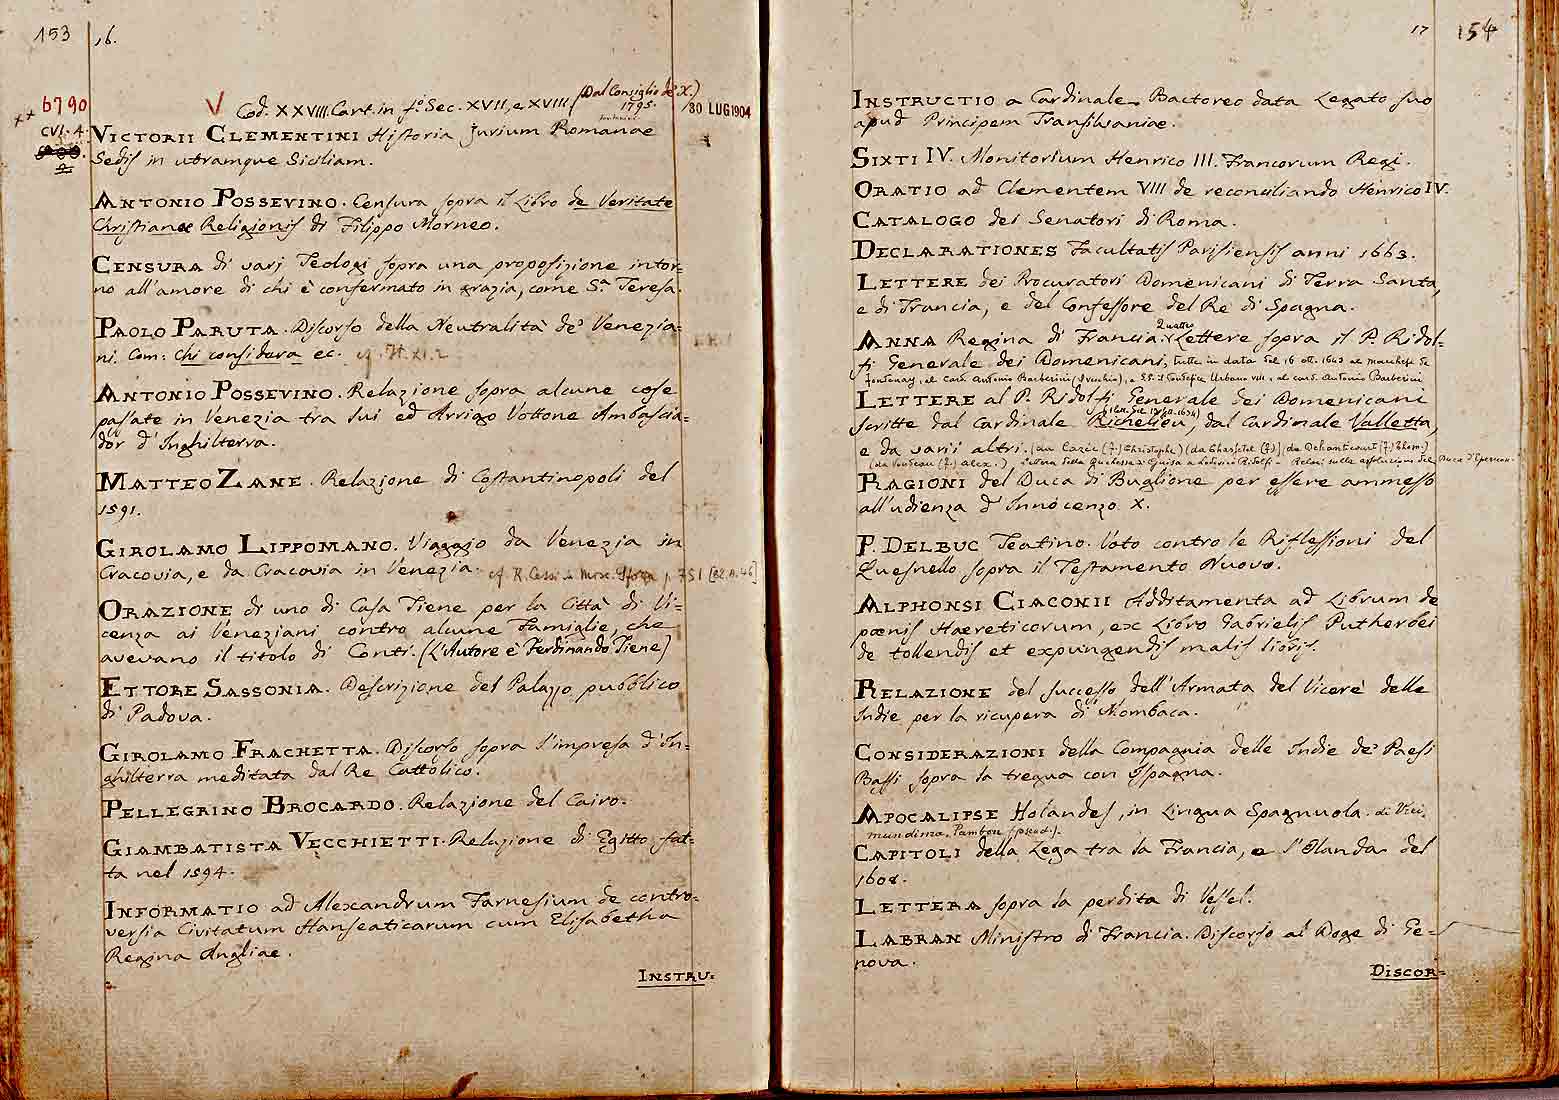 153
16.
6790
CVI. 4.
V Cod. XXVIII. Cart. in fo. Sec. XVII, e XVIII. (Dal Consiglio de' X.)
1795.
30 LUG 1904
VICTORII CLEMENTINI Historia Jurium Romanae
Sedis in utramque Siciliam.
ANTONIO POSSEVINO. Censura sopra il Libro de Veritate
Christianae Religionis di Filippo Morneo.
CENSURA di varj Teologi sopra una proposizione intor=
no all'amore di chi è confermato in grazia, come Sa. Teresa.
PAOLO PARUTA. Discorso della Neutralità de' Venezia=
ni. Com: chi considera ec. cf. It. XI. 2
ANTONIO POSSEVINO. Relazione sopra alcune cose
passate in Venezia tra lui ed Arrigo Vottone Ambascia=
dor d'Inghilterra.
MATTEO ZANE. Relazione di Costantinopoli del
1591.
GIROLAMO LIPPOMANO. Viaggio da Venezia in
Cracovia, e da Cracovia in Venezia.
ORAZIONE di uno di Casa Tiene per la Città di Vi=
cenza ai Veneziani contro alcune Famiglie, che
avevano il titolo di Conti. (L'Autore è Ferdinando Tiene)
ETTORE SASSONIA. Descrizione del Palazzo pubblico
di Padova.
GIROLAMO FRACHETTA. Discorso sopra l'impresa d'In=
ghilterra meditata dal Re Cattolico.
PELLEGRINO BROCARDO. Relazione del Cairo.
GIAMBATISTA VECCHIETTI. Relazione di Egitto fat=
ta nel 1594.
INFORMATIO ad Alexandrum Farnesium de contro=
versia Civitatum Hanseaticarum cum Elisabetha
Regina Angliae.
INSTRU=
17
154
INSTRUCTIO a Cardinale Bactoreo data Legato suo
apud Principem Transilvaniae.
SIXTI IV. Monitorium Henrico III. Francorum Regi.
ORATIO ad Clementem VIII de reconciliando Henrico IV.
CATALOGO dei Senatori di Roma.
DECLARATIONES Facultatis Parisiensis anni 1663.
LETTERE dei Procuratori Domenicani di Terra Santa,
e di Francia, e del Confessore del Re di Spagna.
ANNA Regina di Francia. Quattro Lettere sopra il P. Ridol=
fi Generale dei Domenicani, tutte in data del 16 ott. 1643 al marchese de
Fontenay, al Card. Antonio Barberini (Vecchio), a SS. il Pontefice Urbano VIII, al card. Antonio Barberini
LETTERE al P. Ridolfi Generale dei Domenicani
scritte dal Cardinale Richelieu, dal Cardinale Valletta,
e da varii altri.
RAGIONI del Duca di Buglione per essere ammesso
all'udienza d'Innocenzo X.
P. DELBUC Teatino. Voto contro le Riflessioni del
Quesnello sopra il Testamento Nuovo.
ALPHONSI CIACONII Additamenta ad Librum de
poenis Haereticorum, ex Libro Gabrielis Putherbei
de tollendis et expungendis malis libris.
RELAZIONE del successo dell'Armata del Vicerè delle
Indie per la ricupera di Mombaca.
CONSIDERAZIONI della Compagnia delle Indie de' Paesi
Bassi sopra la tregua con Ispagna.
APOCALIPSE Holandes, in Lingua Spagnuola. di Veri
mundima. Pambon (pseud.).
CAPITOLI della Lega tra la Francia, e l'Olanda del
1608.
LETTERA sopra la perdita di Vessel.
LABRAN Ministro di Francia. Discorso al Doge di Ge=
nova.
DISCOR=